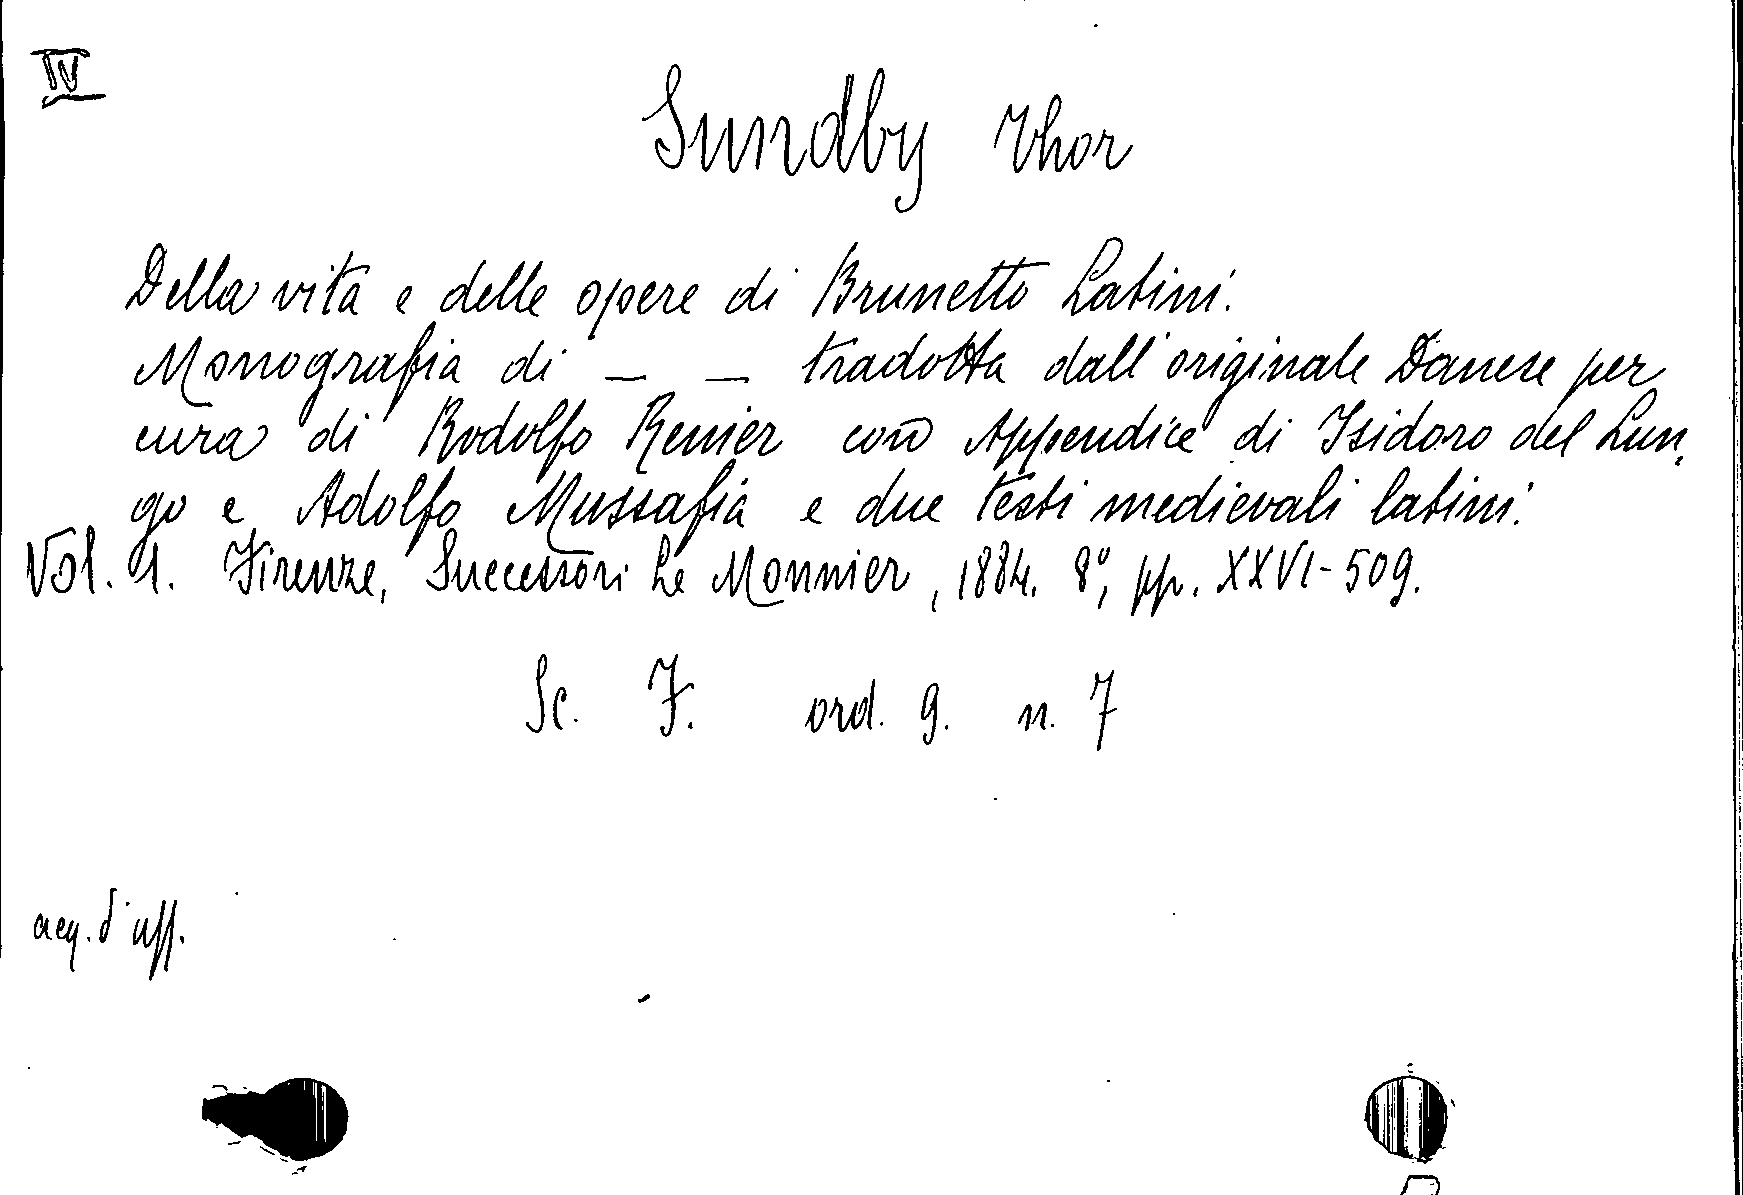 IV
Sundby Thor
Della vita e delle opere di Brunetto Latini.
Monografia di _ _ tradotta dall'originale Danese per
cura di Rodolfo Renier con Appendice di Isidoro del Lun,
go e Adolfo Mussafia e due testi medievali latini.
Vol. 1. Firenze, Successori Le Monnier, 1884. 8°, pp. XXVI-509.
Sc. F. ord. 9. n. 7
acq. d'uff.